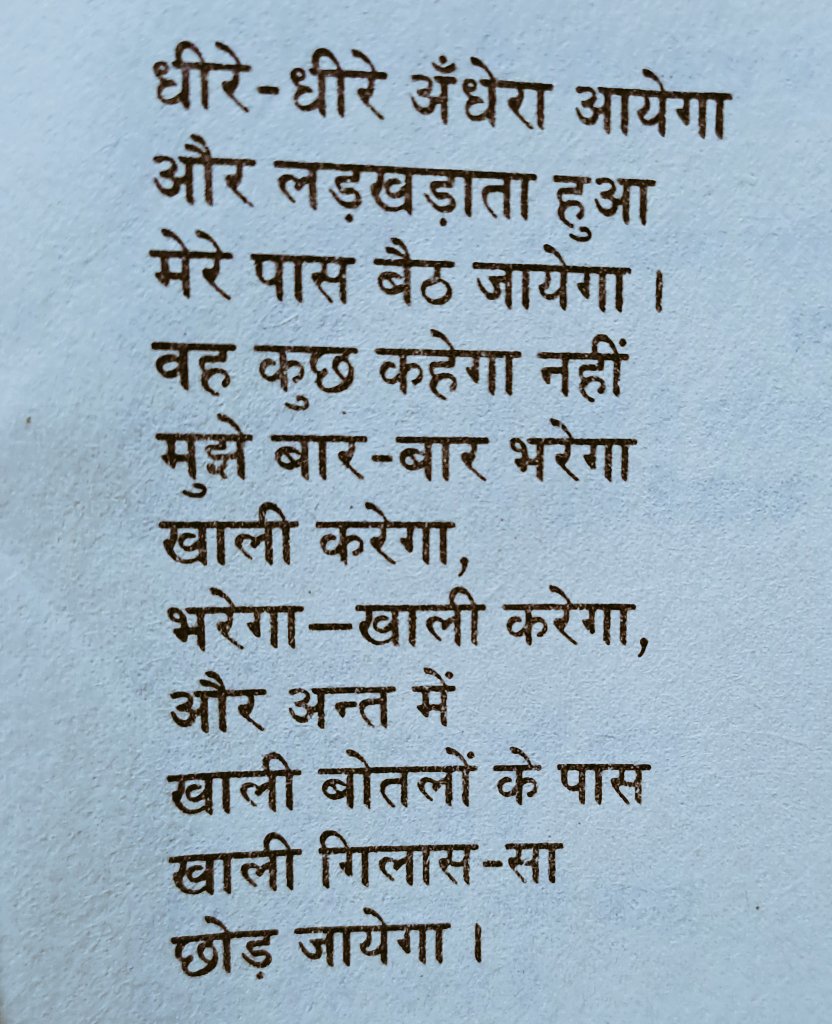 धीरे-धीरे अँधेरा आयेगा
और लड़खड़ाता हुआ
मेरे पास बैठ जायेगा ।
वह कुछ कहेगा नहीं
मुझे बार-बार भरेगा
खाली करेगा,
भरेगा—खाली करेगा,
और अन्त में
खाली बोतलों के पास
खाली गिलास-सा
छोड़ जायेगा ।